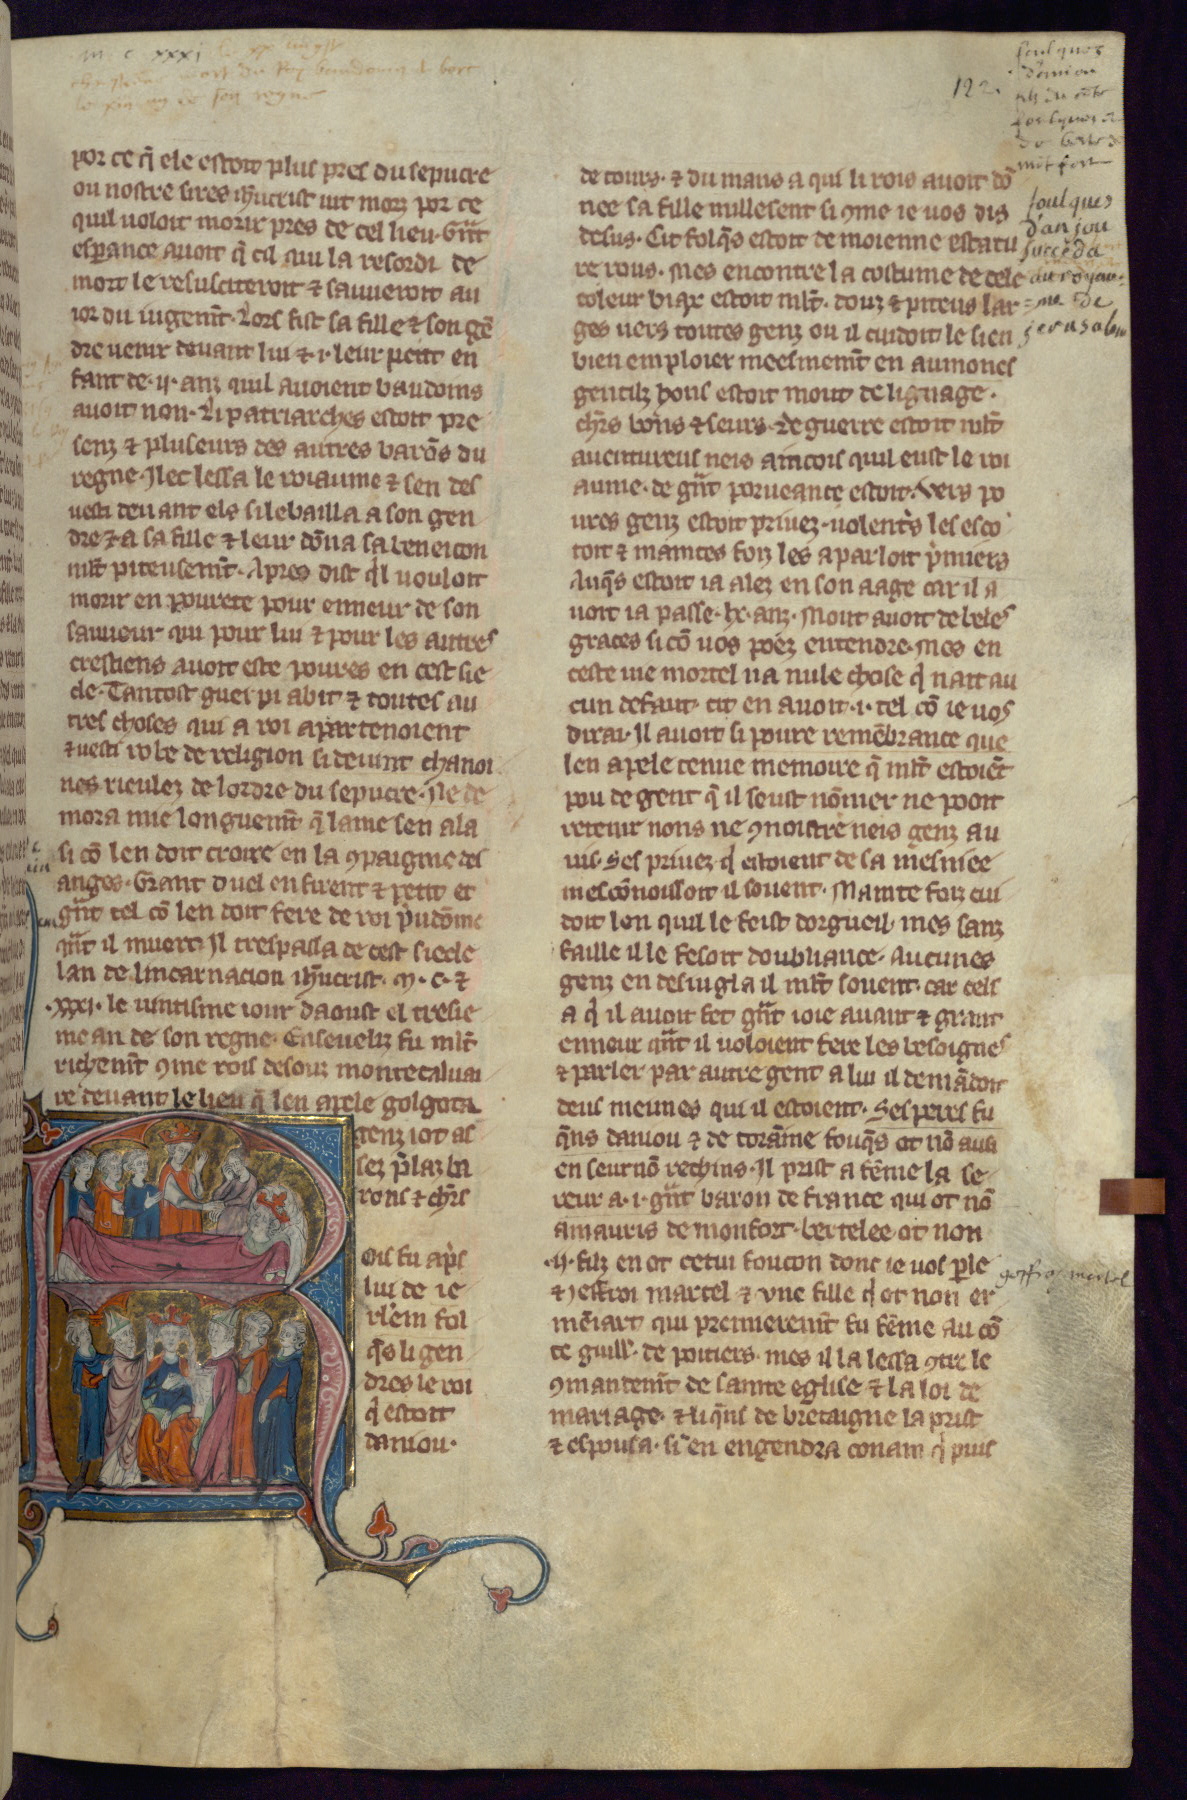 m c xxxi
122.
por ce q̃ ele estoit plus pres du sepucre
ou nostre sires ih̃ucrist iut morz por ce
quil uoloit morir pres de cel lieu. Gr̃nt
esperance auoit q̃ cil qui la resordi de
mort le resusciteroit ⁊ sauueroit au
ior du iugem̃t. Lors fist sa fille ⁊ son gẽ
dre uenir deuant lui ⁊ .i. leur petit en
fant de .ij. anz quil auoient baudoins
auoit non. Li patriarches estoit pre
senz ⁊ pluseurs des autres barõs du
regne. Ilec lessa le roiaume ⁊ sen des
uesti deuant els si le bailla a son gen
dre ⁊ a sa fille ⁊ leur dõna sa beneicon
ml̃t piteusem̃t. Apres dist q̃l uouloit
morir en pourete pour enneur de son
sauueur qui pour lui ⁊ pour les autres
crestiens auoit este poures en cest sie
cle. Tantost guerpi abit ⁊ toutes au
tres choses qui a roi apartenoient
⁊ uesti robe de religion si deuint chanoi
nes rieulez de lordre du sepucre. Ne de
mora mie longuem̃t q̃ lame sen ala
si cõ len doit croire en la ꝯpaignie des
anges. Grant duel en firent ⁊ petit et
gr̃nt tel cõ len doit fere de roi p̃udõme
qñt il muert. Il trespassa de cest siecle
lan de lincarnacion ih̃ucrist. M. C. ⁊
.xxxi. le uintisme iour daoust el tresie
me an de son regne. Enseueliz fu ml̃t
richem̃t ꝯme rois desouz monte caluai
re deuant le lieu q̃ len apele golgota
genz iot as
sez p̃laz ba
rons ⁊ ch̃rs
Ois fu ap̃s
lui de ie
rl̃em fol
q̃s li gen
dres le roi
q̃ estoit
daniou.
de tours. ⁊ du mans a qui li rois auoit dõ
nee sa fille millesent si ꝯme ie uos dis
desus. Cit folq̃s estoit de moienne estatu
re rous. Mes encontre la costume de cele
coleur biax estoit ml̃t. douz ⁊ piteus lar
ges uers toutes genz ou il cuidoit le sien
bien emploier meesmem̃t en aumones
gentilz hons estoit mout de lignage.
ch̃rs bõns ⁊ seurs. De guerre estoit ml̃t
auentureus neis aincois quil eust le roi
aume. de gr̃nt porueance estoit. Vers po
ures genz estoit priuez. uolent̃s les esco
toit ⁊ maintes foiz les aparloit p̃miers
Auq̃s estoit ia alez en son aage car il a
uoit ia passe .lx. anz. Mout auoit de beles
graces si cõ uos poez entendre. Mes en
ceste uie mortel na nule chose q̃ nait au
cun defaut. cit en auoit .i. tel cõ ie uos
dirai. Il auoit si poure remẽbrance que
len apele tenue memoire q̃ ml̃t estoiẽt
pou de gent q̃ il seust nõmer ne pooit
retenir nons ne ꝯnoistre neis genz au
uis. Ses priuez q̃ estoient de sa mesniee
mescõnoissoit il souent. Mainte foiz cui
doit len quil le feist dorgueil. mes sanz
faille il le fesoit doubliance. Aucunes
genz en desiugla il ml̃t souent. car cels
a q̃ il auoit fet gr̃nt ioie auant ⁊ grant
enneur qñt il uoloient fere les besoignes
⁊ parler par autre gent a lui il demãdoit
deus meimes qui il estoient. Ses peres fu
q̃ns daniou ⁊ de toraine fouq̃s ot nõ aus
en seurnõ rechins. Il prist a fẽme la se
reur a .i. gr̃nt baron de france qui ot nõ
amauris de monfort. bertelee ot non
.ij. filz en ot cetui foucon dont ie uos ꝑle
⁊ ieffroi martel ⁊ vne fille q̃ ot non er
mẽiart qui premierem̃t fu fẽme au cõ
te guill̃. de poitiers. mes il la lessa ꝯtre le
ꝯmandem̃t de sainte eglise ⁊ la loi de
mariage. ⁊ li q̃ns de bretaigne la prist
⁊ espousa. si en engendra conain q̃ puis
foulques
d'aniou
foulques
d'anjou
succeda
au royau=
=me de
jerusalem
geffroy martel